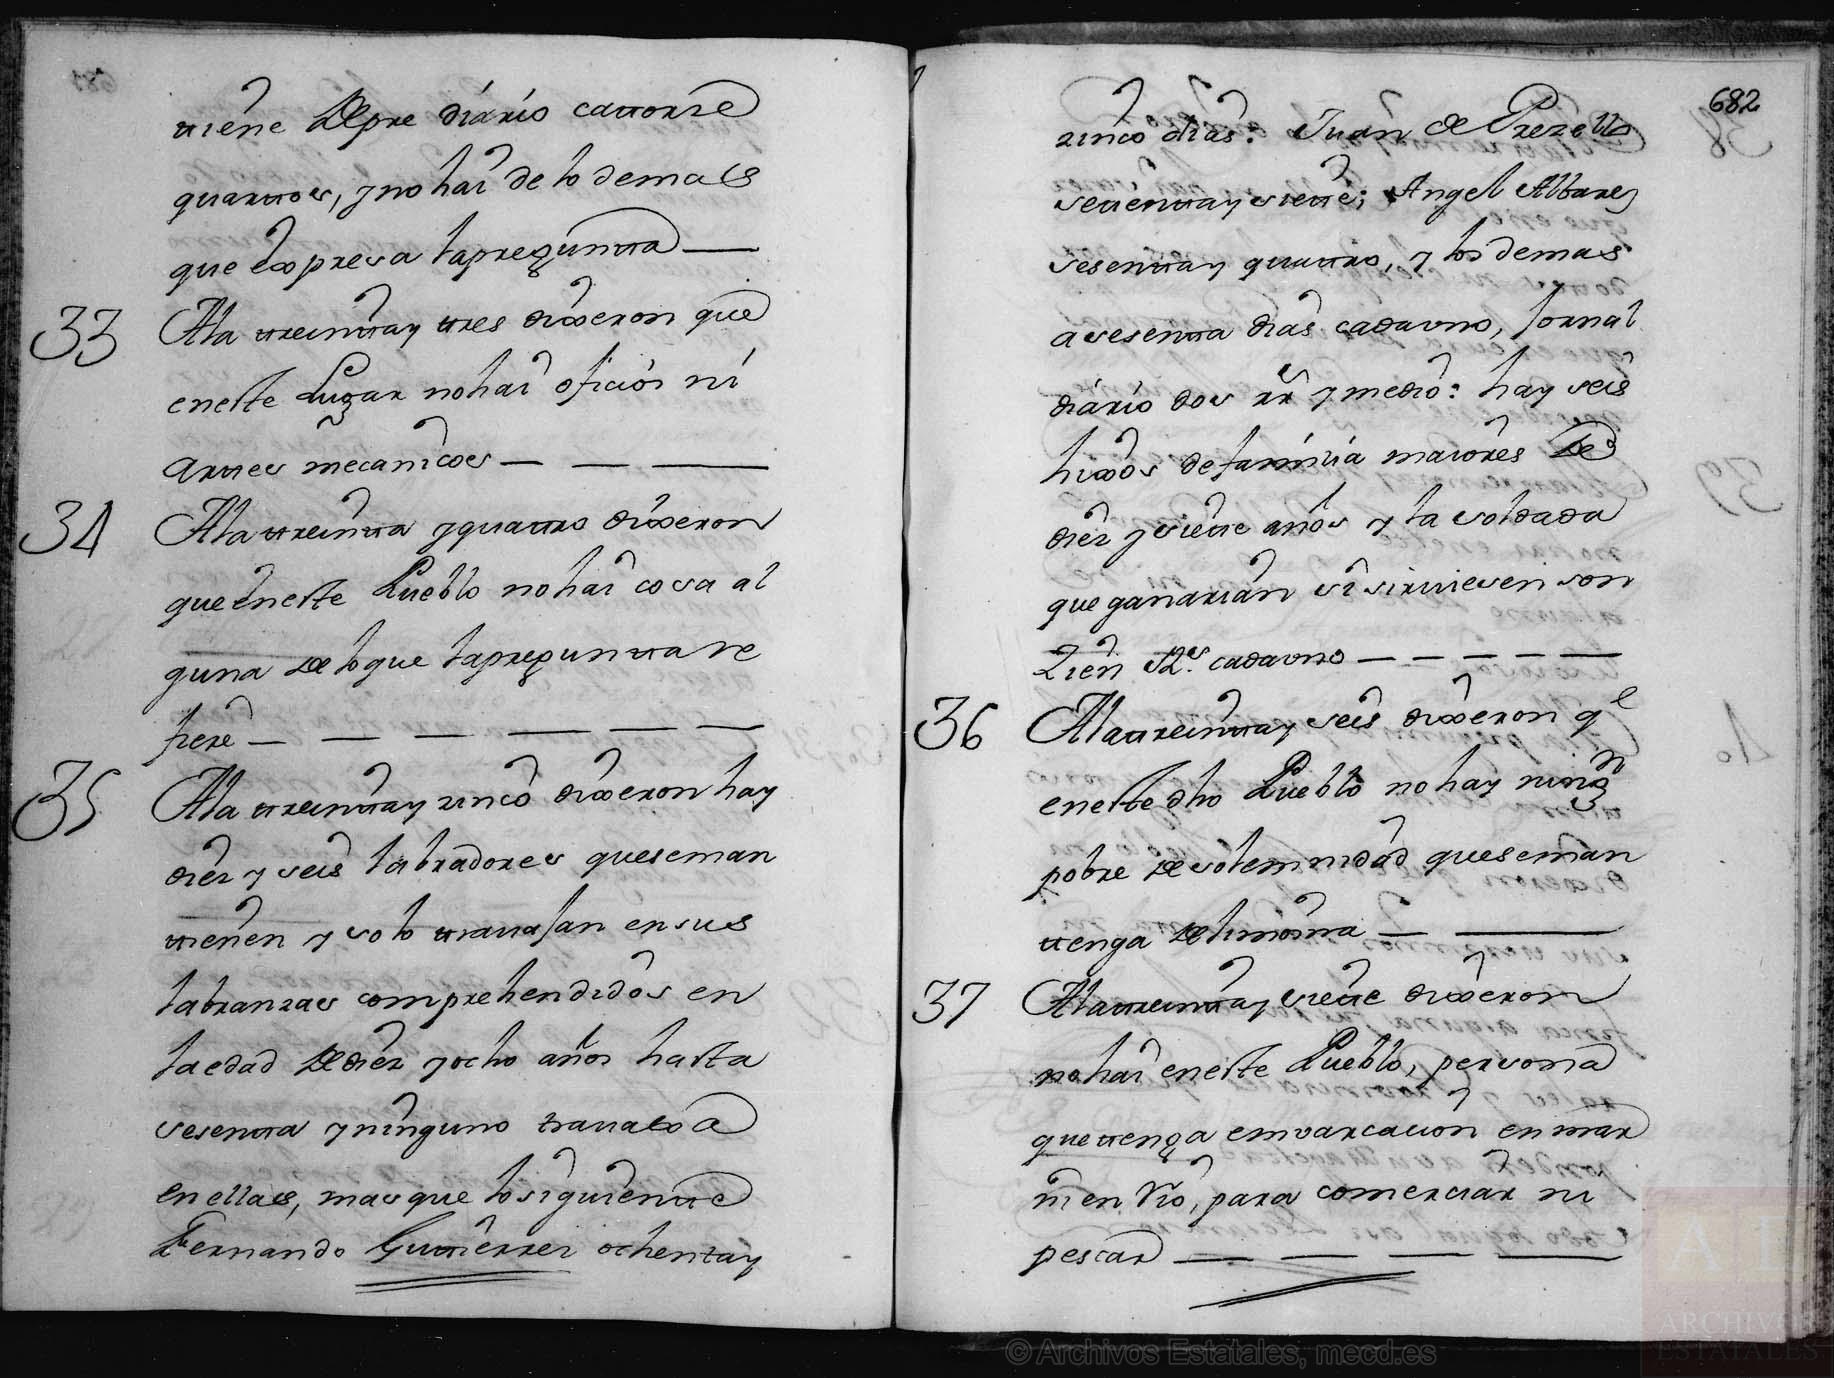 ttiene de pre diario cattorze
quarttos, y no hai de lo demas
que expresa la preguntta
33 A la treintta y tres dixeron que
en este Lugar no hai oficios ni
arttes mecanicos
34 A la treintta y quattro dixeron
que en este Pueblo no hai cosa al
guna de lo que la preguntta re
fiere
35 A la treintta y zinco dixeron hay
diez y seis labradores que se man
ttienen y solo travajan en sus
labranzas comprehendidos en
la edad de diez y ocho años hasta
sesentta y ninguno travaxa
en ellas, mas que lo siguientte
Fernando Guttierrez ochenta y
682
zinco dias: Juan de
settentta y siette; Angel Albarez
sesentta y quattro, y los demas
a sesentta dias cada uno, Jornal
diario dos rr.s y medio: hay seis
hixos de familia maiores de
diez y siette años y la soldada
que ganarian si sirviesen son
Zien R.s cada uno
36 A la treintta y seis dixeron q.e
en este dho Pueblo no hay ning.n
pobre de solemnidad que se man
ttenga de limosna
37 A la treintta y siette dixeron
no hai en este Pueblo, persona
que ttenga embarcacion en mar
ni en Rio, para comerciar ni
pescar
A E
ARCHIVOS
ESTATALES
© Archivos Estatales, mecd.es